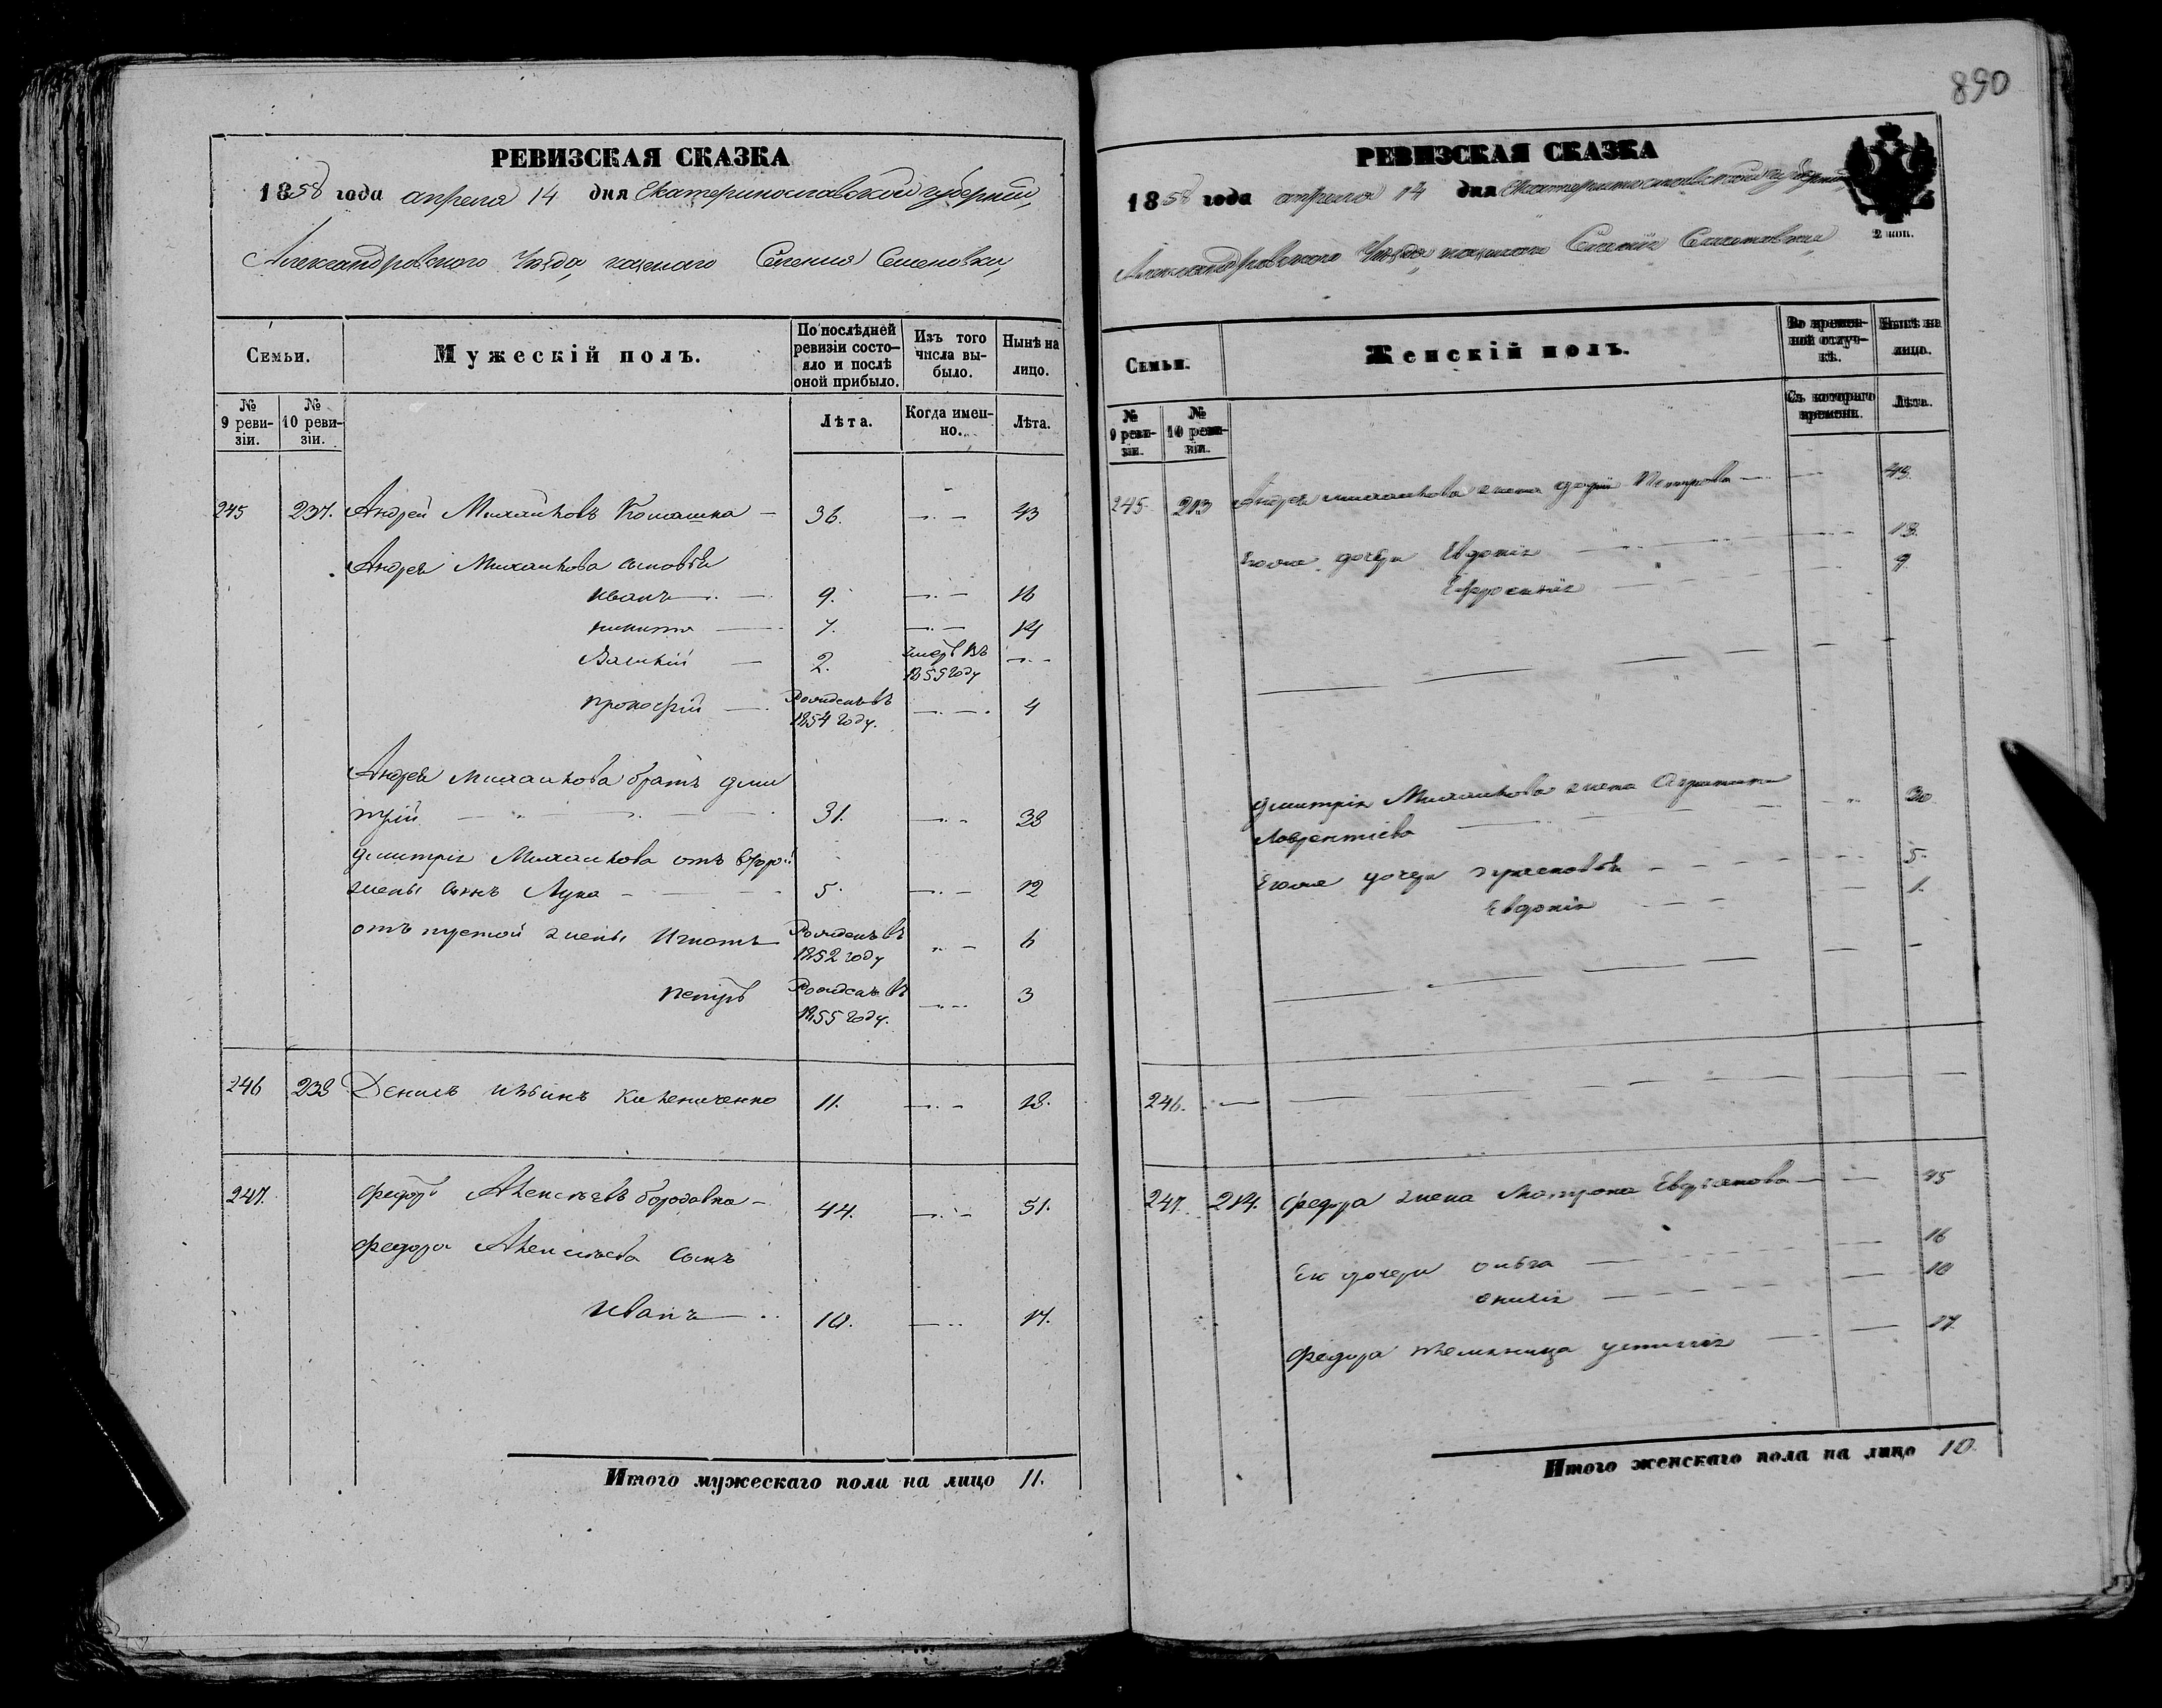 РЕВИЗСКАЯ СКАЗКА
1858 года апреля 14 дня Екатеринославской губернии,
Александровского Уезда, казеннаго Селения Семеновки,
Семьи.
Мужескій полъ.
По послѣдней ревизіи состояло и послѣ оной прибыло.
Изъ того числа выбыло.
Нынѣ на лицо.
№ 9 ревизіи.
№ 10 ревизіи.
Лѣта.
Когда именно.
Лѣта.
245 237. Андрей Михайловъ 36. 43
Андрея Михайлова сыновья
Иванъ 9. 16
Никита 7. 14
Василій 2. умеръ въ 1855 году
Прокофій Рожденъ въ 1854 году. 4
Андрея Михайлова братъ Дми
трій 31. 38
Дмитрія Михайлова отъ второй
жены сынъ Лука 5. 12
отъ третей жены Игнатъ Рожденъ въ 1852 году 6
Петръ Рожденъ въ 1855 году. 3
246 238 Денисъ 11. 18.
247. Федоръ Алексѣевъ Бородавка 44. 51.
Федора Алексѣева сынъ
Иванъ 10. 17.
Итого мужескаго пола на лицо 11.
890
РЕВИЗСКАЯ СКАЗКА
1858 года апреля 14 дня Екатеринославской губернии
2 коп.
Александровского Уезда, казеннаго Селения Семеновки,
Семьи.
Женскій полъ.
Во временной отлучкѣ.
Нынѣ на лицо.
№ 9 ревизіи.
№ 10 ревизіи.
Съ котораго времени.
Лѣта.
245. 213 Андрея Михайлова жена Петрова 43.
Его же дочери Евдокія 13.
Ефросинія 9
Дмитрія Михайлова жена
Лаврентіева 30
Его же дочери 5.
Евдокія 1.
246.
247. 214. Федора жена Матрона 45
Ея дочери Ольга 16
10
Федора племянница 17.
Итого женскаго пола на лицо 10.